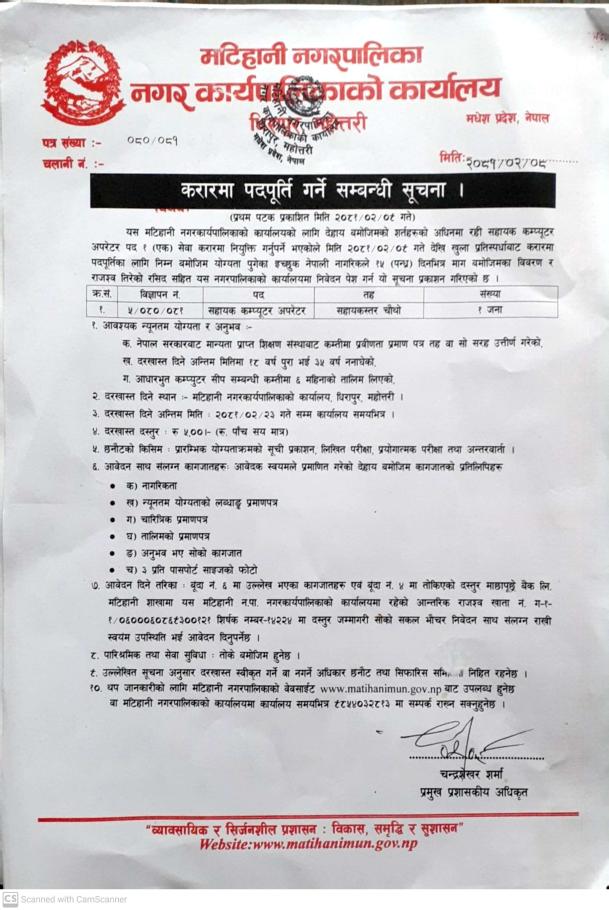 मटिहानी नगरपालिका
नगर कार्यपालिकाको कार्यालय
मधेश प्रदेश, नेपाल
पत्र संख्या :- ०८०/०८१
चलानी नं. :-
मिति: २०८१/०२/०८
करारमा पदपूर्ति गर्ने सम्बन्धी सूचना ।
(प्रथम पटक प्रकाशित मिति २०८१/०२/०९ गते)
यस मटिहानी नगरकार्यपालिकाको कार्यालयको लागि देहाय बमोजिमको शर्तहरुको अधिनमा रही सहायक कम्प्यूटर
अपरेटर पद १ (एक) सेवा करारमा नियुक्ति गर्नुपर्ने भएकोले मिति २०८१/०२/०९ गते देखि खुला प्रतिस्पर्धाबाट करारमा
पदपूर्तिका लागि निम्न बमोजिम योग्यता पुगेका इच्छुक नेपाली नागरिकले १५ (पन्ध्र) दिनभित्र माग बमोजिमका विवरण र
राजश्व तिरेको रसिद सहित यस नगरपालिकाको कार्यालयमा निवेदन पेश गर्न यो सूचना प्रकाशन गरिएको छ ।
क्र.सं. विज्ञापन नं. पद तह संख्या
१. ५/०८०/०८१ सहायक कम्प्यूटर अपरेटर सहायकस्तर चौथो १ जना
१. आवश्यक न्यूनतम योग्यता र अनुभव :-
क. नेपाल सरकारबाट मान्यता प्राप्त शिक्षण संस्थाबाट कम्तीमा प्रवीणता प्रमाण पत्र तह वा सो सरह उत्तीर्ण गरेको,
ख. दरखास्त दिने अन्तिम मितिमा १८ वर्ष पुरा भई ३५ वर्ष ननाघेको,
ग. आधारभूत कम्प्यूटर सीप सम्बन्धी कम्तीमा ६ महिनाको तालिम लिएको,
२. दरखास्त दिने स्थान :- मटिहानी नगरकार्यपालिकाको कार्यालय, धिरापुर, महोत्तरी ।
३. दरखास्त दिने अन्तिम मिति : २०८१/०२/२३ गते सम्म कार्यालय समयभित्र ।
४. दरखास्त दस्तुर : रु ५,००।- (रु. पाँच सय मात्र)
५. छनौटको किसिम : प्रारम्भिक योग्यताक्रमको सूची प्रकाशन, लिखित परीक्षा, प्रयोगात्मक परीक्षा तथा अन्तरवार्ता ।
६. आवेदन साथ संलग्न कागजातहरुः आवेदक स्वयमले प्रमाणित गरेको देहाय बमोजिम कागजातको प्रतिलिपिहरु
• क) नागरिकता
• ख) न्यूनतम योग्यताको लब्धाङ्क प्रमाणपत्र
• ग) चारित्रिक प्रमाणपत्र
• घ) तालिमको प्रमाणपत्र
• ङ) अनुभव भए सोको कागजात
• च) ३ प्रति पासपोर्ट साइजको फोटो
७. आवेदन दिने तरिका : बूंदा नं. ६ मा उल्लेख भएका कागजातहरु एवं बूंदा नं. ४ मा तोकिएको दस्तुर माछापुछ्रे बैंक लि.
मटिहानी शाखामा यस मटिहानी न.पा. नगरकार्यपालिकाको कार्यालयमा रहेको आन्तरिक राजश्व खाता नं. ग-१-
१/०६०००६०८७६९३००१२१ शिर्षक नम्बर-१४२२४ मा दस्तुर जम्मागरी सोको सक्कल भौचर निवेदन साथ संलग्न राखी
स्वयंम उपस्थिति भई आवेदन दिनुपर्नेछ ।
८. पारिश्रमिक तथा सेवा सुविधा : तोके बमोजिम हुनेछ ।
९. उल्लेखित सूचना अनुसार दरखास्त स्वीकृत गर्ने वा नगर्ने अधिकार छनौट तथा सिफारिस निहित रहनेछ ।
१०. थप जानकारीको लागि मटिहानी नगरपालिकाको वेवसाईट www.matihanimun.gov.np बाट उपलब्ध हुनेछ
वा मटिहानी नगरपालिकाको कार्यालयमा कार्यालय समयभित्र ९८४४०३२८१३ मा सम्पर्क राख्न सक्नुहुनेछ ।
चन्द्रशेखर शर्मा
प्रमुख प्रशासकीय अधिकृत
"व्यावसायिक र सिर्जनशील प्रशासन : विकास, समृद्धि र सुशासन"
Website:www.matihanimun.gov.np
CS Scanned with CamScanner